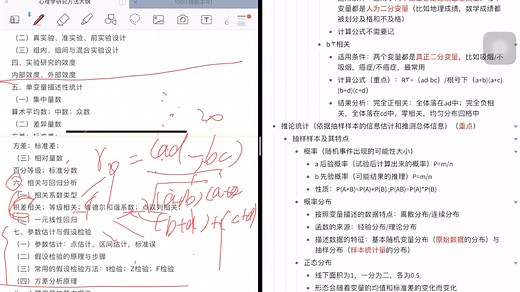 心理学研究方法大纲
（二）真实验、准实验、前实验设计
（三）组内、组间与混合实验设计
四、实验研究的效度
内部效度、外部效度
五、单变量描述性统计
（一）集中量数
算术平均数；中数；众数
（二）差异量数
方差；标准差；
（三）相对量数
百分等级；标准分数
六、相关与回归分析
（一）相关系数类型
积差相关；等级相关；肯德尔和谐系数；点双列相关；
（二）一元线性回归
七、参数估计与假设检验
（一）参数估计：点估计、区间估计、标准误
（二）假设检验的原理与步骤
（三）常用的假设检验方法：t检验；Z检验；F检验
（四）方差分析原理
20
(ad-bc)
(a+b)(a+c)
(b+d)(c+d)
变量都是人为二分变量（比如地理成绩，数学成绩都被划分及格和不及格）
计算公式不需要记
相关
适用条件：两个变量都是真正二分变量，比如吸烟/不吸烟，癌症/不癌症，最常用
计算公式（重点）：RΦ=（ad-bc）/根号下（a+b)(a+c)(b+d)(c+d)
结果分析：完全正相关：全体落在ad中；完全负相关，全体落在cd中，零相关，均匀分布四格中
推论统计（依据抽样样本的信息估计和推测总体信息）（重点）
抽样样本及其特点
概率（随机事件出现的可能性大小）
a 后验概率（试验后计算出来的概率）P=m/n
b 先验概率（可能结果的推理）P=m/n
性质：P(A+B)=P(A)+P(B);P(AB)=P(A)*P(B)
概率分布
按照变量描述的数据特点：离散分布/连续分布
函数的来源：经验分布/理论分布
描述数据的特征：基本随机变量分布（原始数据的分布）与抽样分布（样本统计量的分布）
正态分布
线下面积为1，一分为二，各为0.5
形态会随着变量的均值和标准差的变化而变化